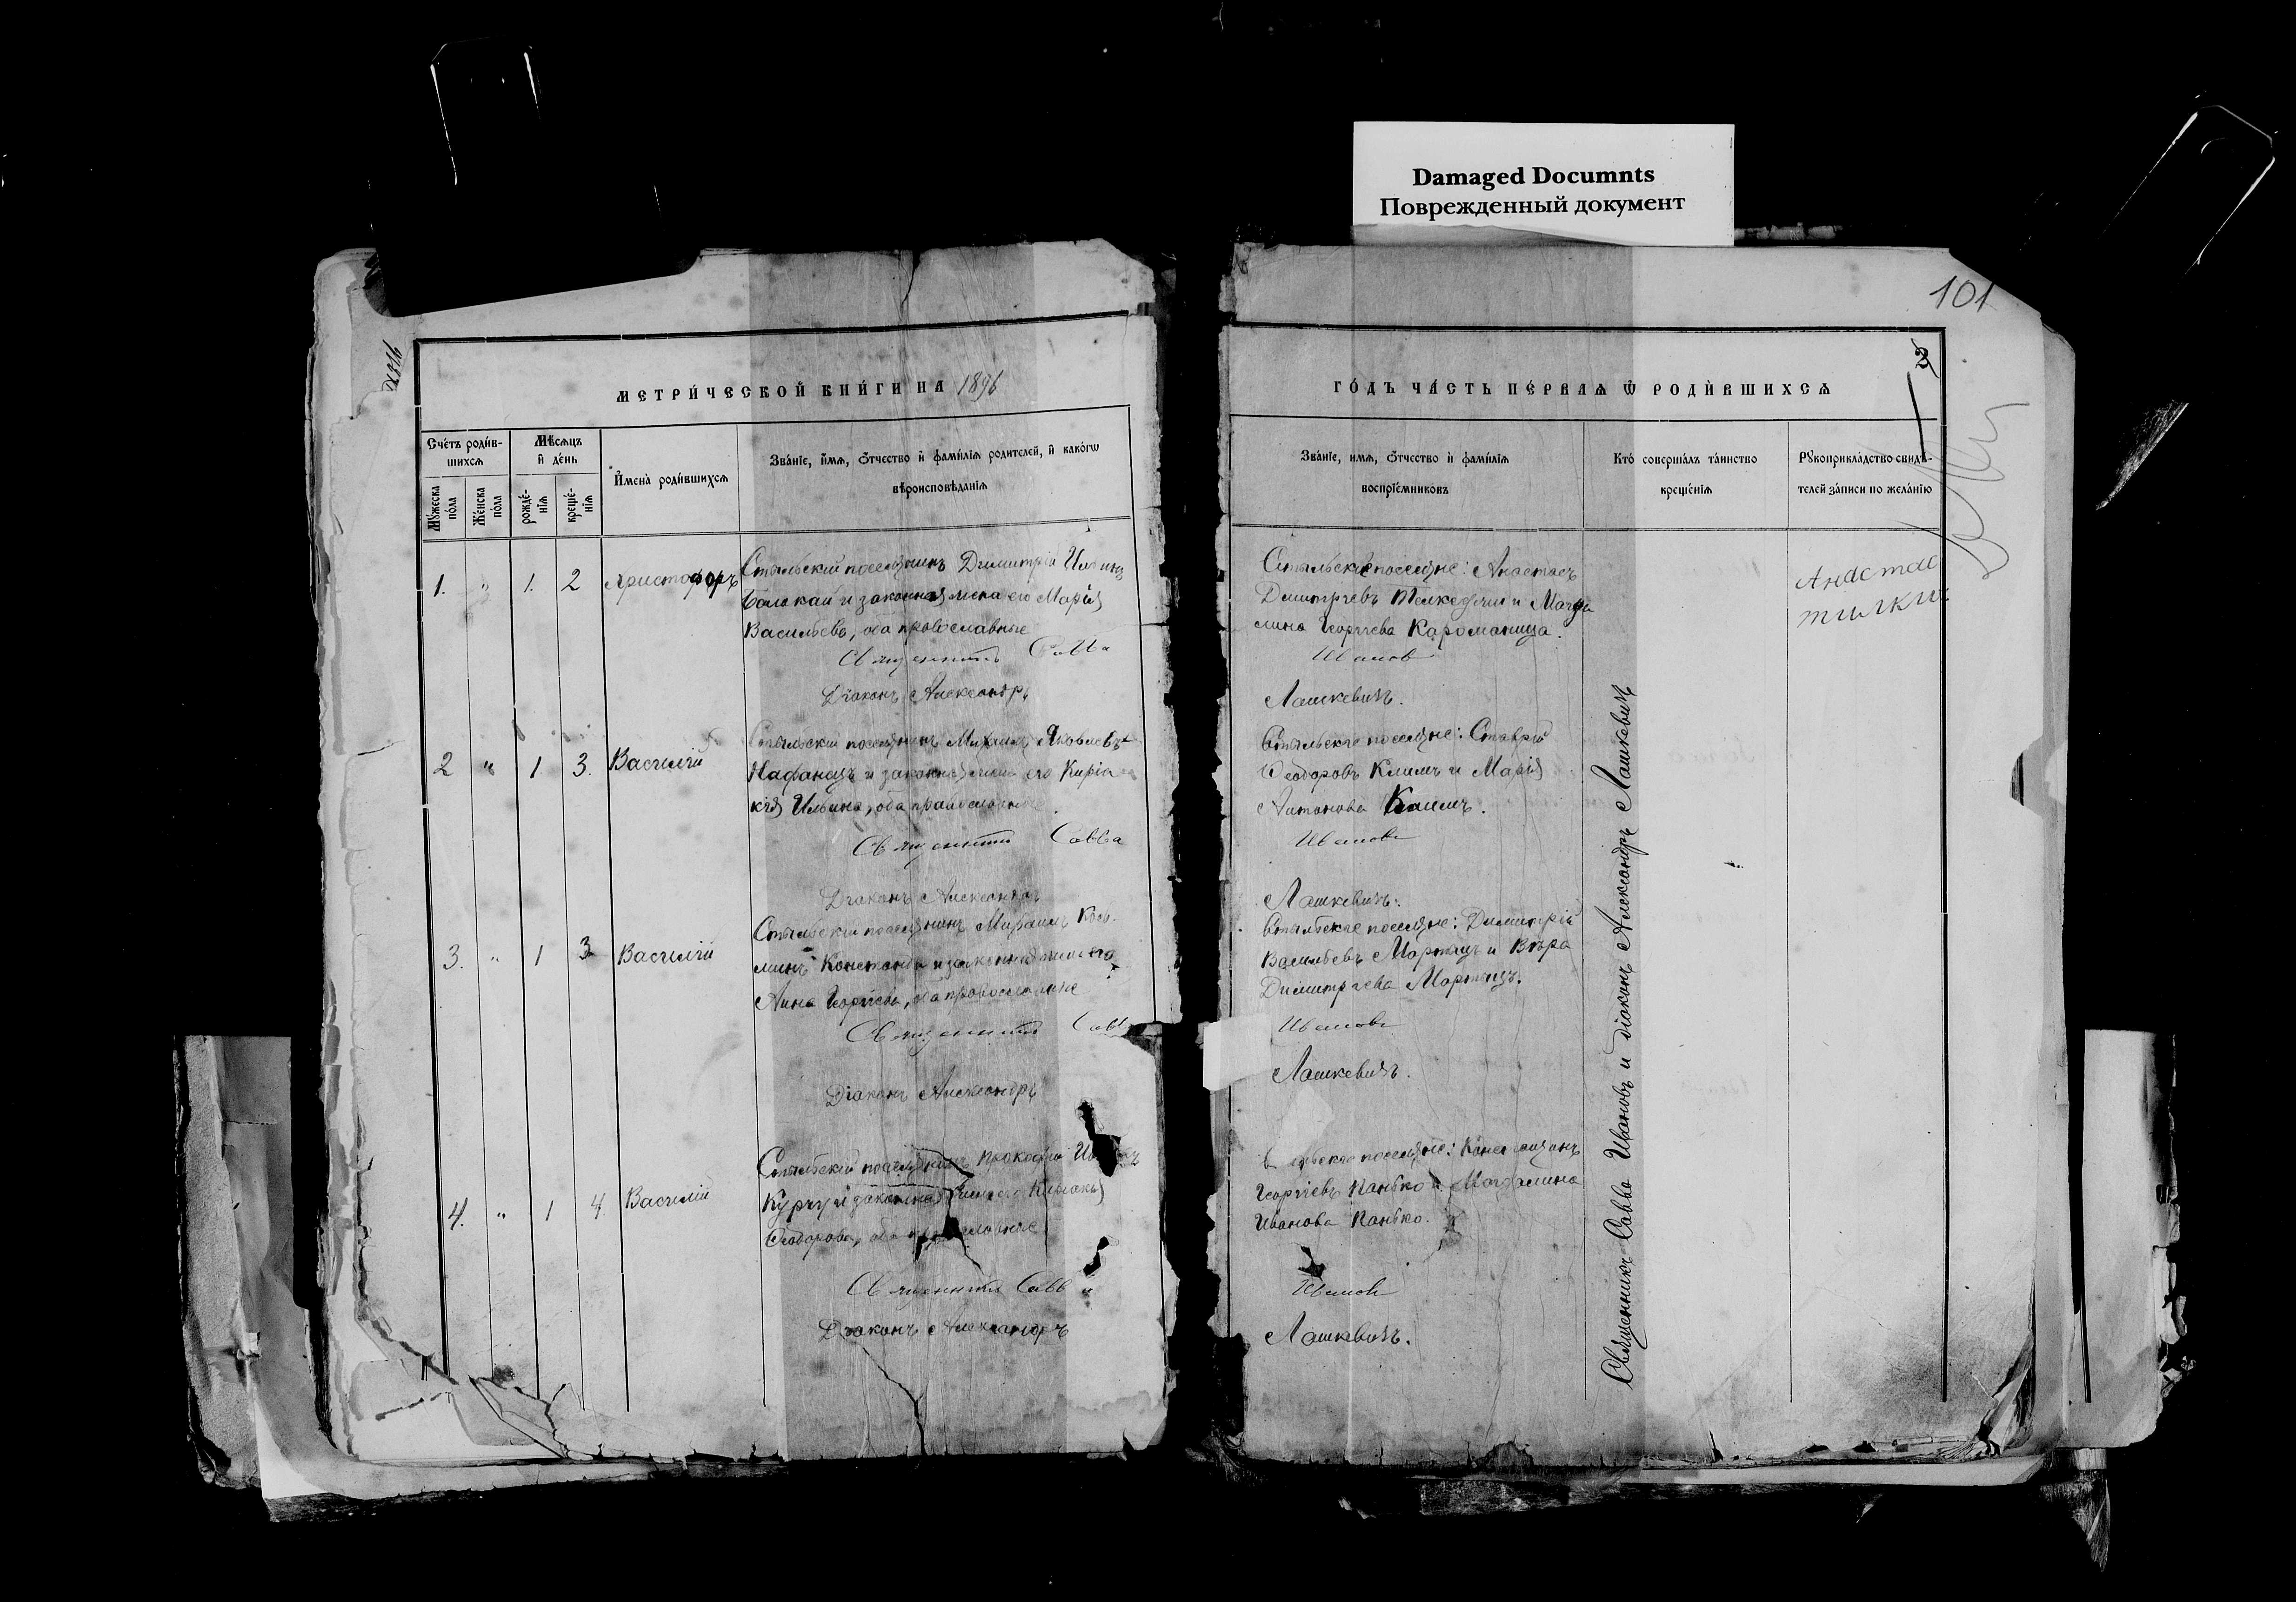 Damaged Documnts
Поврежденный документ
101
2
МЕТРИ́ЧЕСКОЙ КНИ́ГИ НА 1896
ГО́ДЪ ЧА́СТЬ ПЕ́РВАЯ Ѿ РОДИ́ВШИХСЯ
Сче́тъ роди́в-
шихся
Му́жеска по́ла
Же́нска по́ла
Мѣ́сяцъ и де́нь
рожде́-нія
креще́-нія
Имена̀ роди́вшихся
Зва́ніе, и́мя, о́тчество и фами́лія родителей, и како́гѡ
вѣроисповѣ́данія
Зва́ніе, имя, о́тчество и фами́лія
воспріе́мниковъ
Кто́ соверша́лъ та́инство
креще́нія
Рукоприкла́дство свидѣ́-
телей за́писи по жела́нію
1. " 1. 2 Христофоръ
Стыльскій поселянинъ Димитрій Ильинъ
и законная жена его Марія
Васильева, оба православные
Священникъ Савва
Діаконъ Александръ
Стыльскіе поселяне: Анастасъ
Димитріевъ и Магда
лина Георгіева Караманица.
Ивановъ
Лашкевичъ.
Анастас
тилки
2 " 1 3. Василій
Стыльскій поселянинъ Михаилъ Яковлевъ
Нафанецъ и законная жена его Киріа
кія Ильина, оба православные
Священникъ Савва
Діаконъ Александръ
Стыльскіе поселяне: Ставрій
Ѳеодоровъ Климъ и Марія
Антонова Климъ.
Ивановъ
Лашкевичъ.
3. " 1 3 Василій
Стыльскій поселянинъ Михаилъ Козь-
минъ Константи и законная жена его
Анна Георгіева, оба православные
Священникъ Савва
Діаконъ Александръ
Стыльскіе поселяне: Димитрій
Васильевъ Мартыцъ и Вѣра
Димитріева Мартыцъ.
Ивановъ
Лашкевичъ.
4. " 1 4. Василій
Стыльскій поселянинъ Прокофій
Курчу и законная жена его
Ѳеодорова, оба православные
Священникъ Савва
Діаконъ Александръ
поселяне: Константинъ
Георгіевъ Панько и Магдалина
Иванова Панько.
Ивановъ
Лашкевичъ.
Священникъ Савва Ивановъ и діаконъ Александръ Лашкевичъ